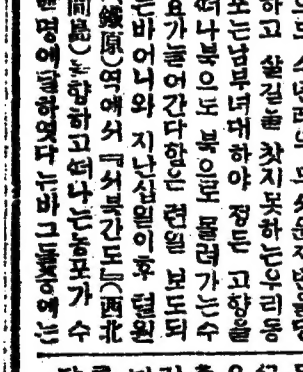 하고 살길을 찻지못하는우리동
포는남부녀대하야 정든 고향을
떠나북으로 북으로 몰려가는수
요가늘어간다함은 련일 보도되
는바어니와 지난십일이후 텰원
鐵原)역에서 『서북간도』(西北
間島)로향하고떠나는농포가 수
명에달하엿다는바그들중에는